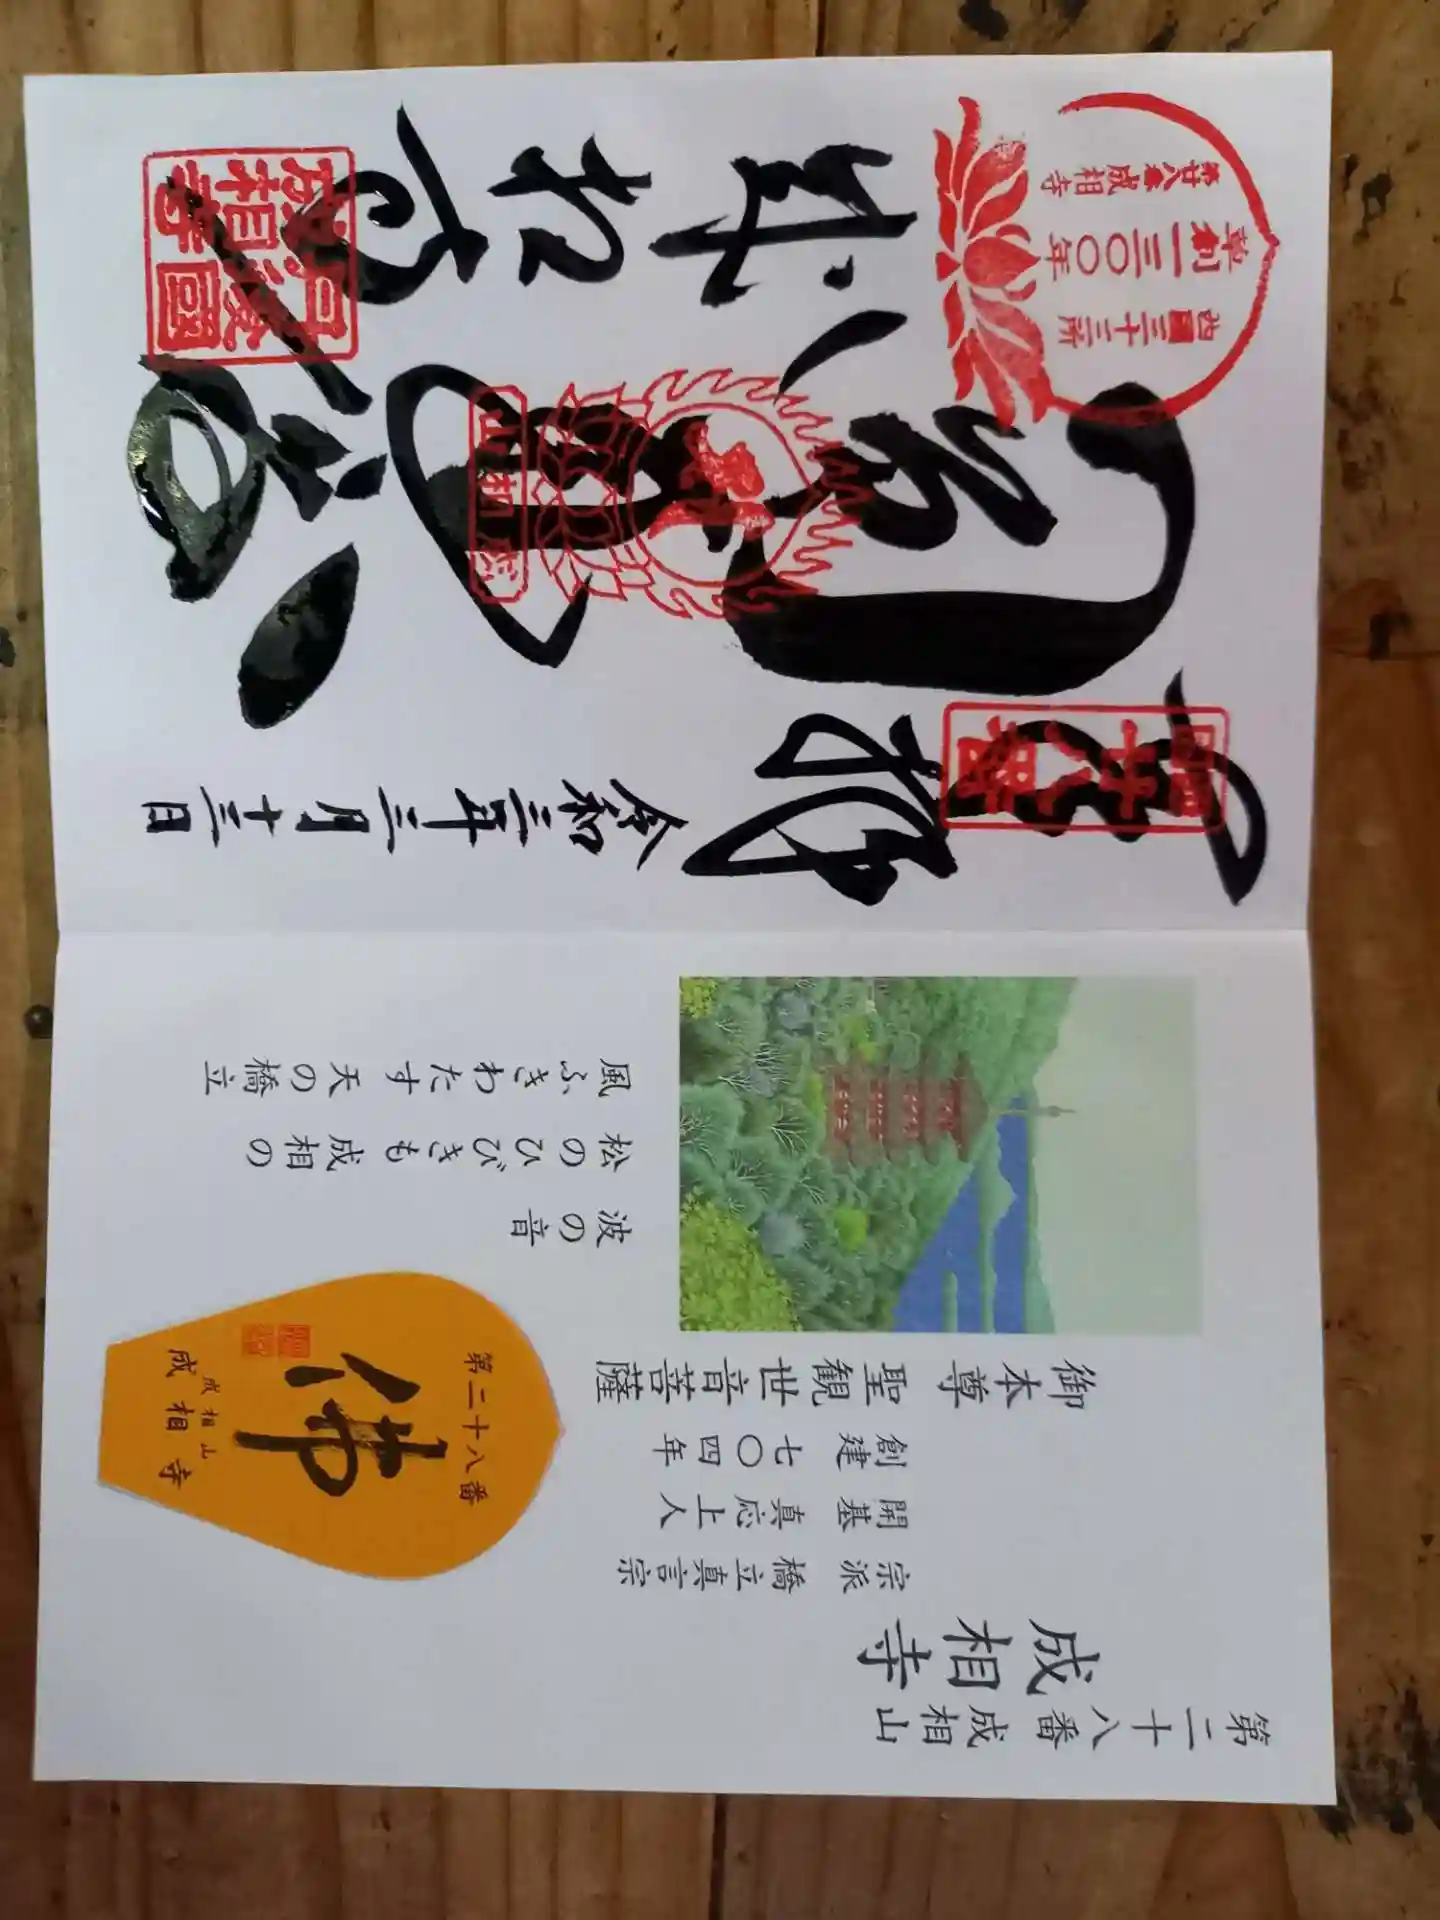 第二十八番 成相山
成相寺
宗派 橋立真言宗
開基 真応上人
創建 七〇四年
御本尊 聖観世音菩薩
波の音
松のひびきも 成相の
風ふきわたす 天の橋立
第二十八番
佛
成相山
成相寺
奉拝
令和三年三月十三日
成相寺
西国三十三所
草創一三〇〇年
第廿八番成相寺
成相山
丹後國
成相寺